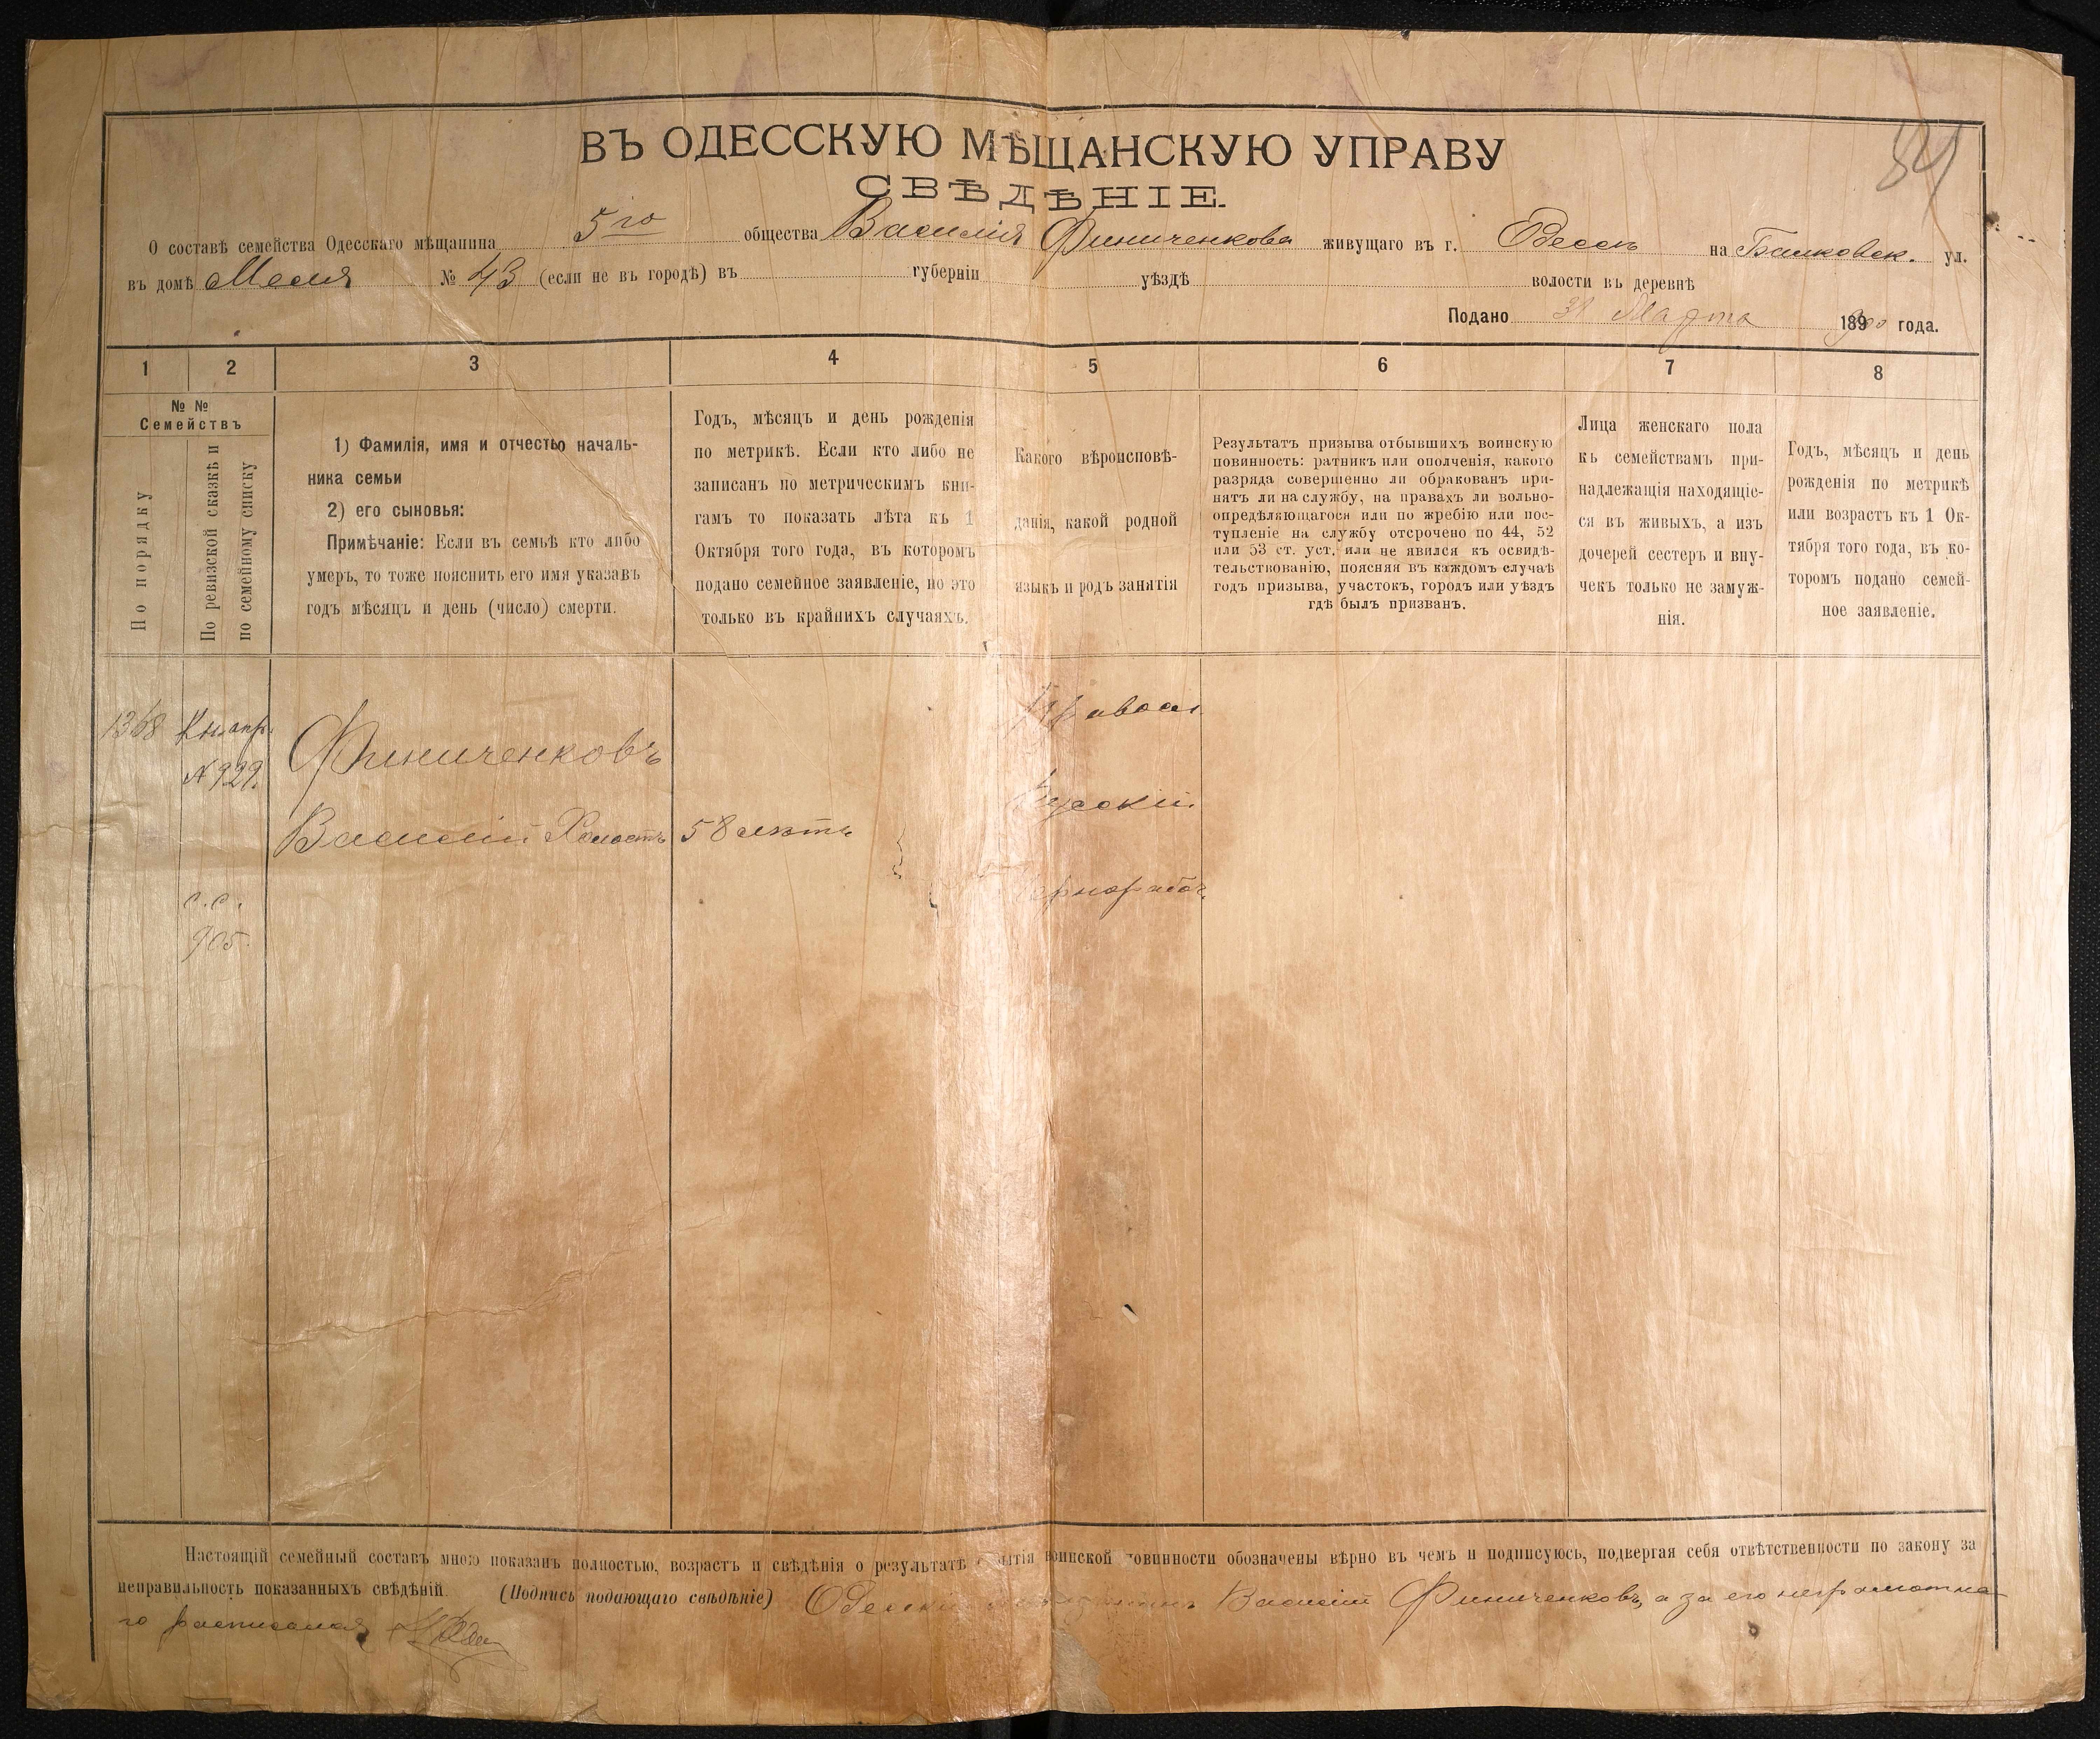 84
ВЪ ОДЕССКУЮ МѢЩАНСКУЮ УПРАВУ
СВѢДѢНІЕ.
О составѣ семейства Одесскаго мѣщанина 5го общества Василія Финиченкова живущаго въ г. Одессѣ на Балковск. ул.
въ домѣ № 43 (если не въ городѣ) въ губерніи уѣздѣ волости въ деревнѣ
Подано 31 Марта 189 900 года.
1 2 3 4 5 6 7 8
№ №
Семействъ
По порядку
По ревизской сказкѣ и
по семейному списку
1) Фамилія, имя и отчество началь-
ника семьи
2) его сыновья:
Примѣчаніе: Если въ семьѣ кто либо
умеръ, то тоже пояснить его имя указавъ
годъ мѣсяцъ и день (число) смерти.
Годъ, мѣсяцъ и день рожденія
по метрикѣ. Если кто либо не
записанъ по метрическимъ кни-
гамъ то показать лѣта къ 1
Октября того года, въ которомъ
подано семейное заявленіе, но это
только въ крайнихъ случаяхъ.
Какого вѣроисповѣ-
данія, какой родной
языкъ и родъ занятія
Результатъ призыва отбывшихъ воинскую
повинность: ратникъ или ополченія, какого
разряда совершенно ли обракованъ при-
нятъ ли на службу, на правахъ ли вольно-
опредѣляющагося или по жребію или пос-
тупленіе на службу отсрочено по 44, 52
или 53 ст. уст. или не явился къ освидѣ-
тельствованію, поясняя въ каждомъ случаѣ
годъ призыва, участокъ, городъ или уѣздъ
гдѣ былъ призванъ.
Лица женскаго пола
къ семействамъ при-
надлежащія находящіе-
ся въ живыхъ, а изъ
дочерей сестеръ и вну-
чекъ только не замуж-
нія.
Годъ, мѣсяцъ и день
рожденія по метрикѣ
или возрастъ къ 1 Ок-
тября того года, въ ко-
торомъ подано семей-
ное заявленіе.
1368 Кн. апр.
№ 929.
Финиченковъ
Василій Холостъ 58 лѣтъ
Правосл
Русскій
Чернорабоч
с.с.
905.
Настоящій семейный составъ мною показанъ полностью, возрастъ и свѣдѣнія о результатѣ отбытія воинской повинности обозначены вѣрно въ чемъ и подписуюсь, подвергая себя отвѣтственности по закону за
неправильность показанныхъ свѣдѣній. (Подпись подающаго свѣдѣніе) Одесскій мѣщанинъ Василій Финиченковъ, а за его неграмотна-
го расписался